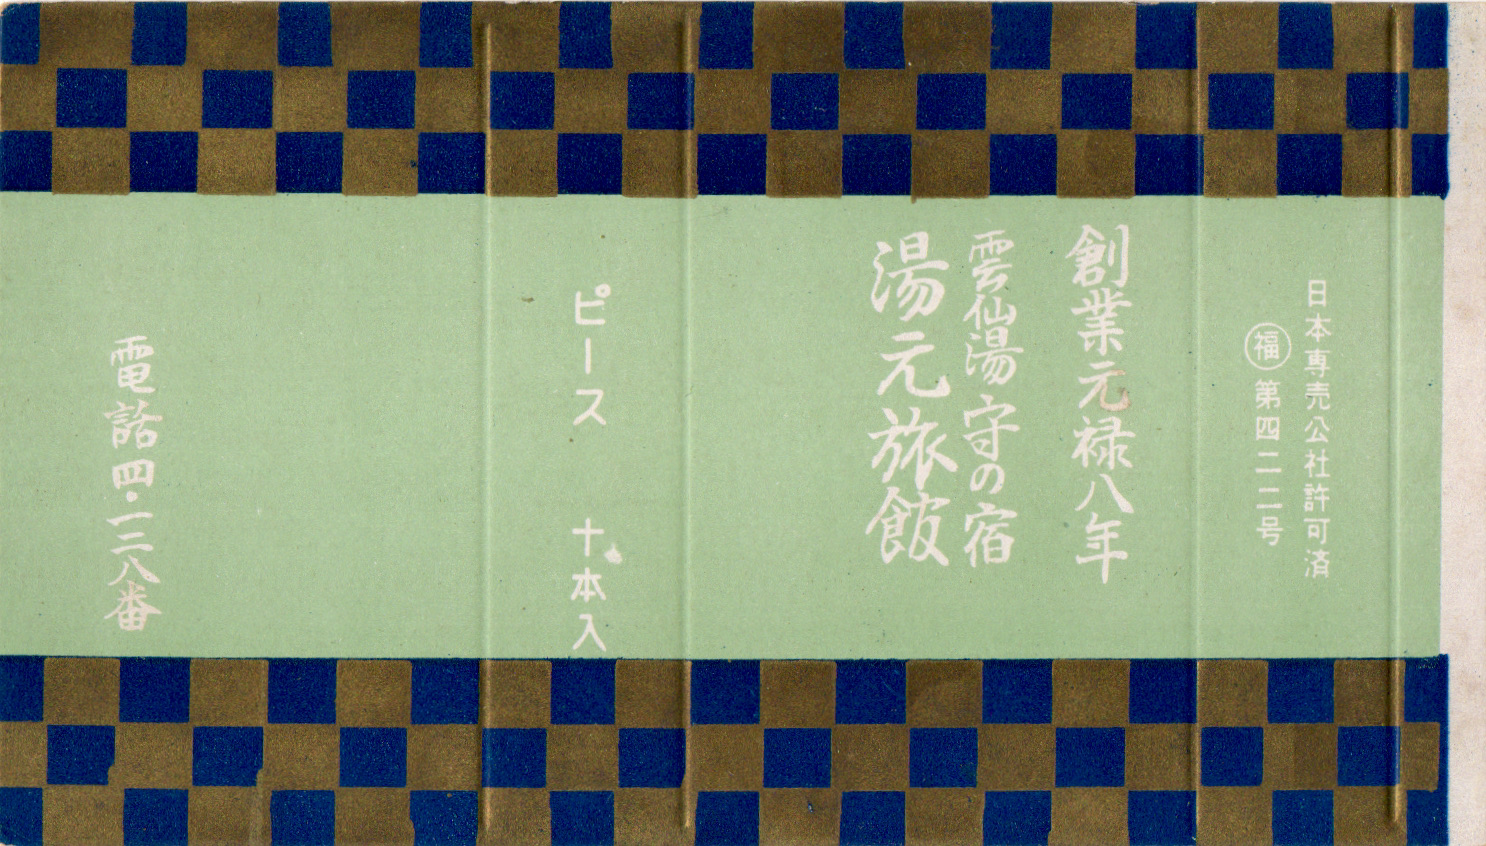 日本専売公社許可済
福 第四二二号
創業元禄八年
雲仙湯守の宿
湯元旅館
ピース 十本入
電話四・一三八番